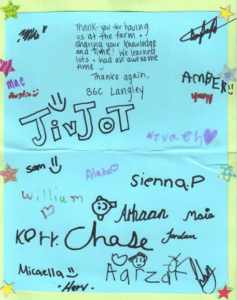 Thank you for having
us at the farm +
sharing your knowledge
and time! We learned
lots + had an awesome
time
Thanks again,
BGC Langley
Mac
Austin
AMBER
JivJOT
Nevaeh
Sam
Alexa
Sienna.P
William
Athaan
Maia
Kort.
Chase
Jordan
Micaella
Aarzak
- Herv -